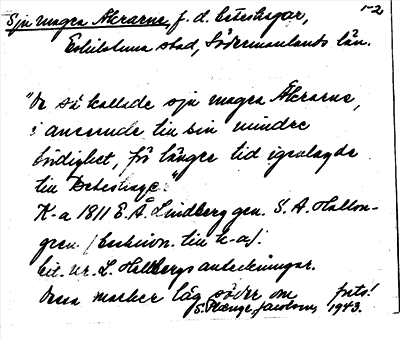 Sju magra Åkrarne, f. d. beteshagar, 1-2
Eskilstuna stad, Södermanlands län.
"De så kallade sju magra Åkrarne,
i anseende till sin mindre
bördighet, för längre tid igenlagde
till Beteshage."
K-a 1811 E. Å. Lindberg gen. S. A. Hallon-
gren. /beskrivn. till k-a/.
cit. ur. L. Hallbergs anteckningar.
Dessa marker låg söder om forts!
S. Jacobson, 1943.